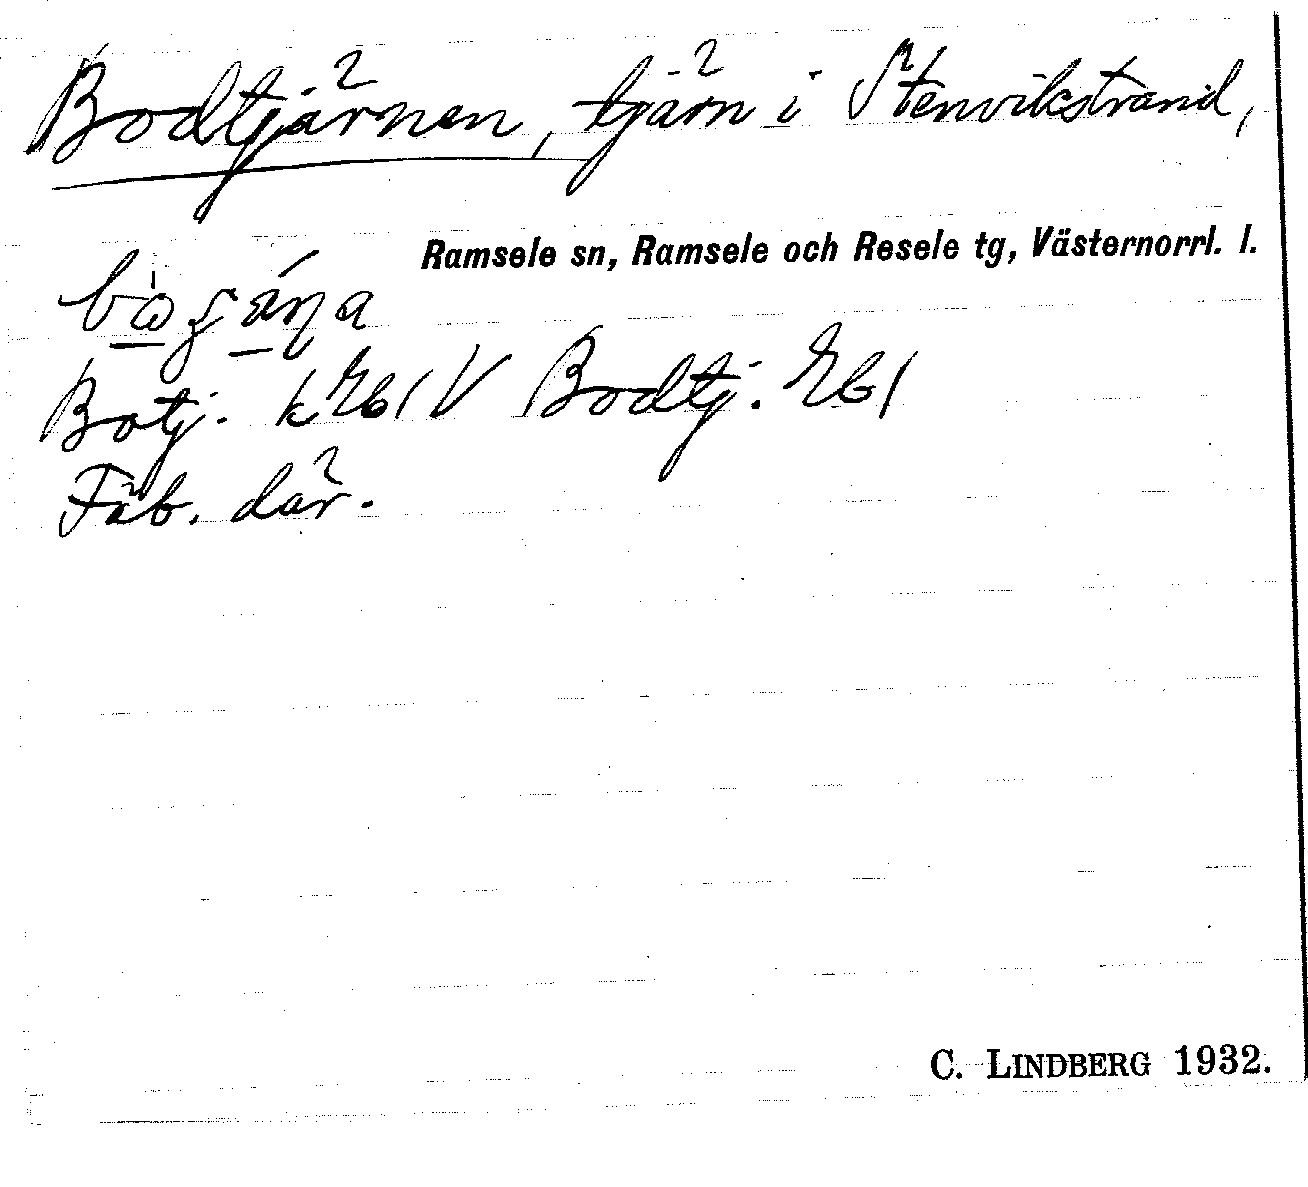 Bodtjärnen, tjärn i Stenvikstrand,
Ramsele sn, Ramsele och Resele tg, Västernorrl. l.
Botj. k Rb1V Bodtj. Rb1
Fäb. där.
C. LINDBERG 1932.